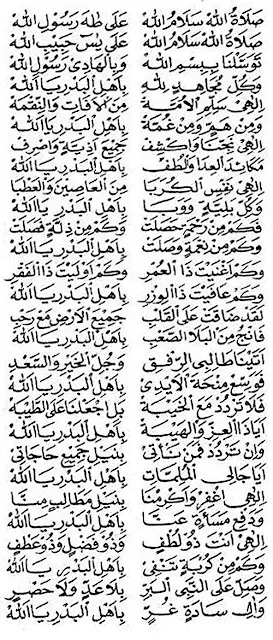 صلاة الله سلام الله على طه رسول الله
صلاة الله سلام الله على يس حبيب الله
توسلنا ببسم الله وبالهادى رسول الله
وكل مجاهد لله باهل البدر يا الله
الهى سلم الامة من الافات والنقمة
ومن هم ومن غمة باهل البدر يا الله
الهى نجنا واكشف جميع اذية واصرف
مكائد العدا والطف باهل البدر يا الله
الهى نفس الكربا من العاصين والعطبا
وكل بلية ووبا باهل البدر يا الله
فكم من رحمة حصلت وكم من ذلة فصلت
وكم من نعمة وصلت باهل البدر يا الله
وكم اغنيت ذا العمر وكم اوليت ذا الفقر
وكم عافيت ذا الوزر باهل البدر يا الله
لقد ضاقت على القلب جميع الارض مع رحب
فانج من البلا الصعب باهل البدر يا الله
اتينا طالبى الرفق وجل الخير والسعد
فوسع منحة الايدى باهل البدر يا الله
فلا تردد مع الخيبة بل اجعلنا على الطيبة
ايا ذا العز والهيبة باهل البدر يا الله
وان تردد فمن نأتى بنيل جميع حاجاتى
ايا جالى الملمات باهل البدر يا الله
الهى اغفر واكرمنا بنيل مطالب منا
ودفع مساءة عنا باهل البدر يا الله
الهى انت ذو لطف وذو فضل وذو عطف
وكم من كربة تنفى باهل البدر يا الله
وصل على النبى البر بلا عد ولا حصر
وال سادة غر باهل البدر يا الله